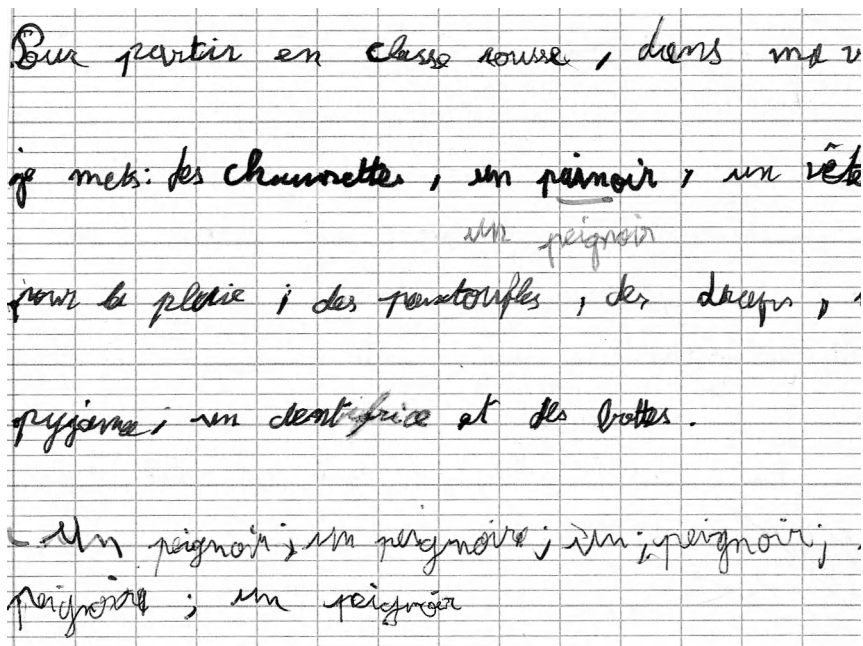 Pour partir en classe rousse, dans ma v
je mets: des chaussettes, un painoir, un vête
un peignoir
pour la pluie; des pantoufles, des draps,
pyjama; un dentifrice et des bottes.
- Un peignoir; un peignoire; un; peignoir;
peignoire; un peignoir